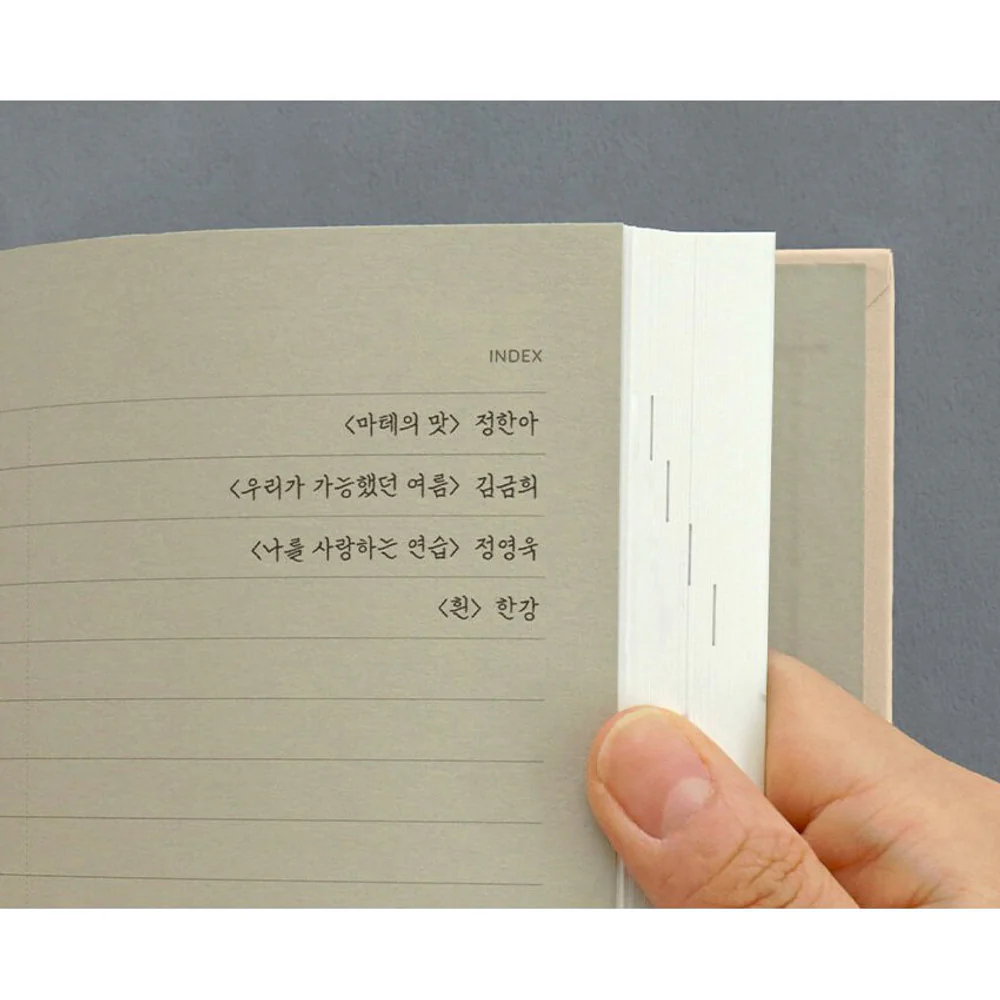 INDEX
〈마테의 맛〉 정한아
〈우리가 가능했던 여름〉 김금희
〈나를 사랑하는 연습〉 정영욱
〈흰〉 한강